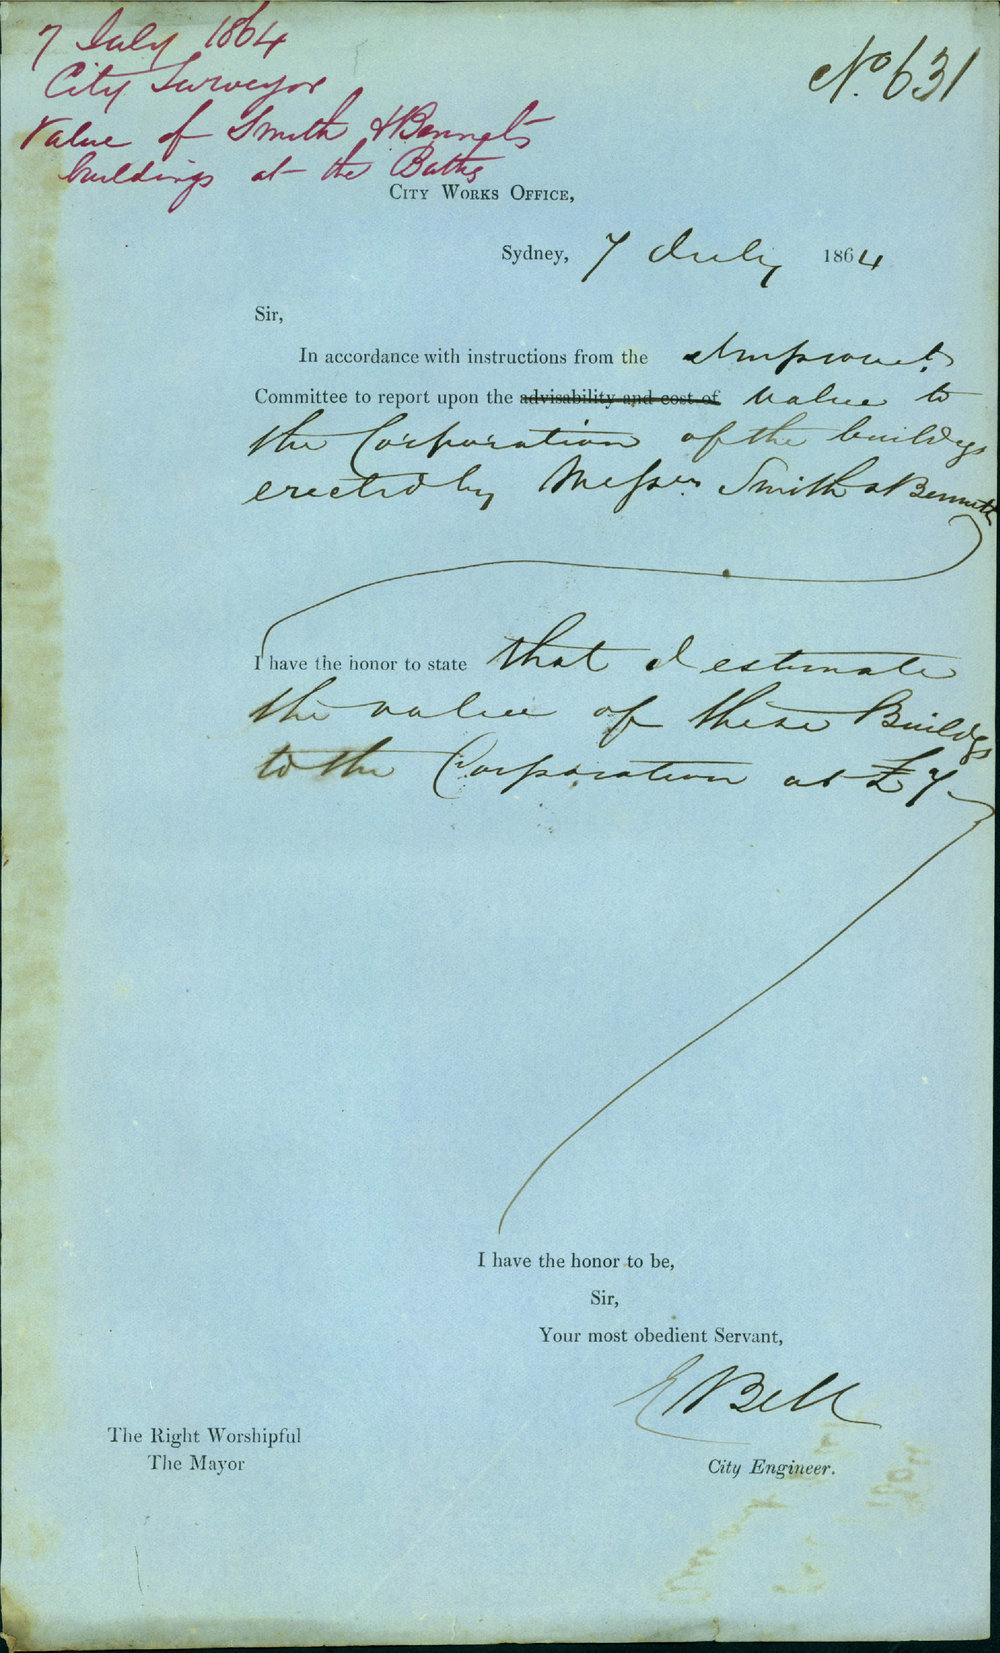 7 July 1864
City Surveyor
Value of Smith & Bennet's
buildings at the Baths
No. 631
CITY WORKS OFFICE,
Sydney, 7 July 1864
Sir,
In accordance with instructions from the Improvet.
Committee to report upon the advisability and cost of value to
the Corporation of the buildgs
erected by Messrs. Smith & Bennett
I have the honor to state that I estimate
the value of these Buildgs
to the Corporation at £7
I have the honor to be,
Sir,
Your most obedient Servant,
E Bell
The Right Worshipful
The Mayor
City Engineer.